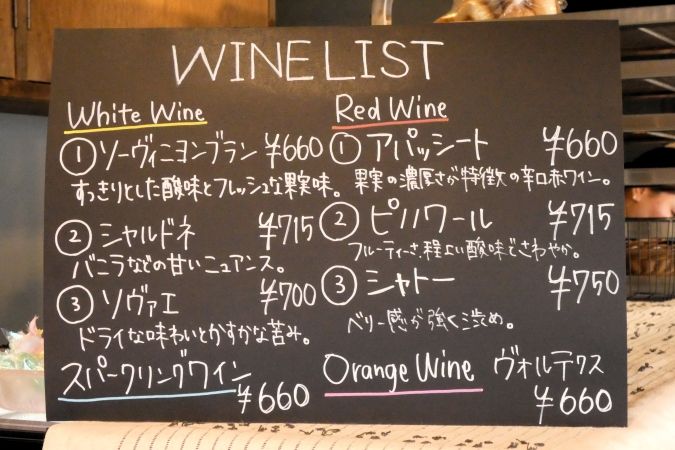 WINE LIST
White Wine
① ソーヴィニヨンブラン ¥660
すっきりとした酸味とフレッシュな果実味。
② シャルドネ ¥715
バニラなどの甘いニュアンス。
③ ソヴァエ ¥700
ドライな味わいとかすかな苦み。
スパークリングワイン
¥660
Red Wine
① アパッシート ¥660
果実の濃厚さが特徴の辛口赤ワイン。
② ピノノワール ¥715
フルーティーさ、程よい酸味でさわやか。
③ シャトー ¥750
ベリー感が強く渋め。
Orange Wine ヴォルテクス
¥660